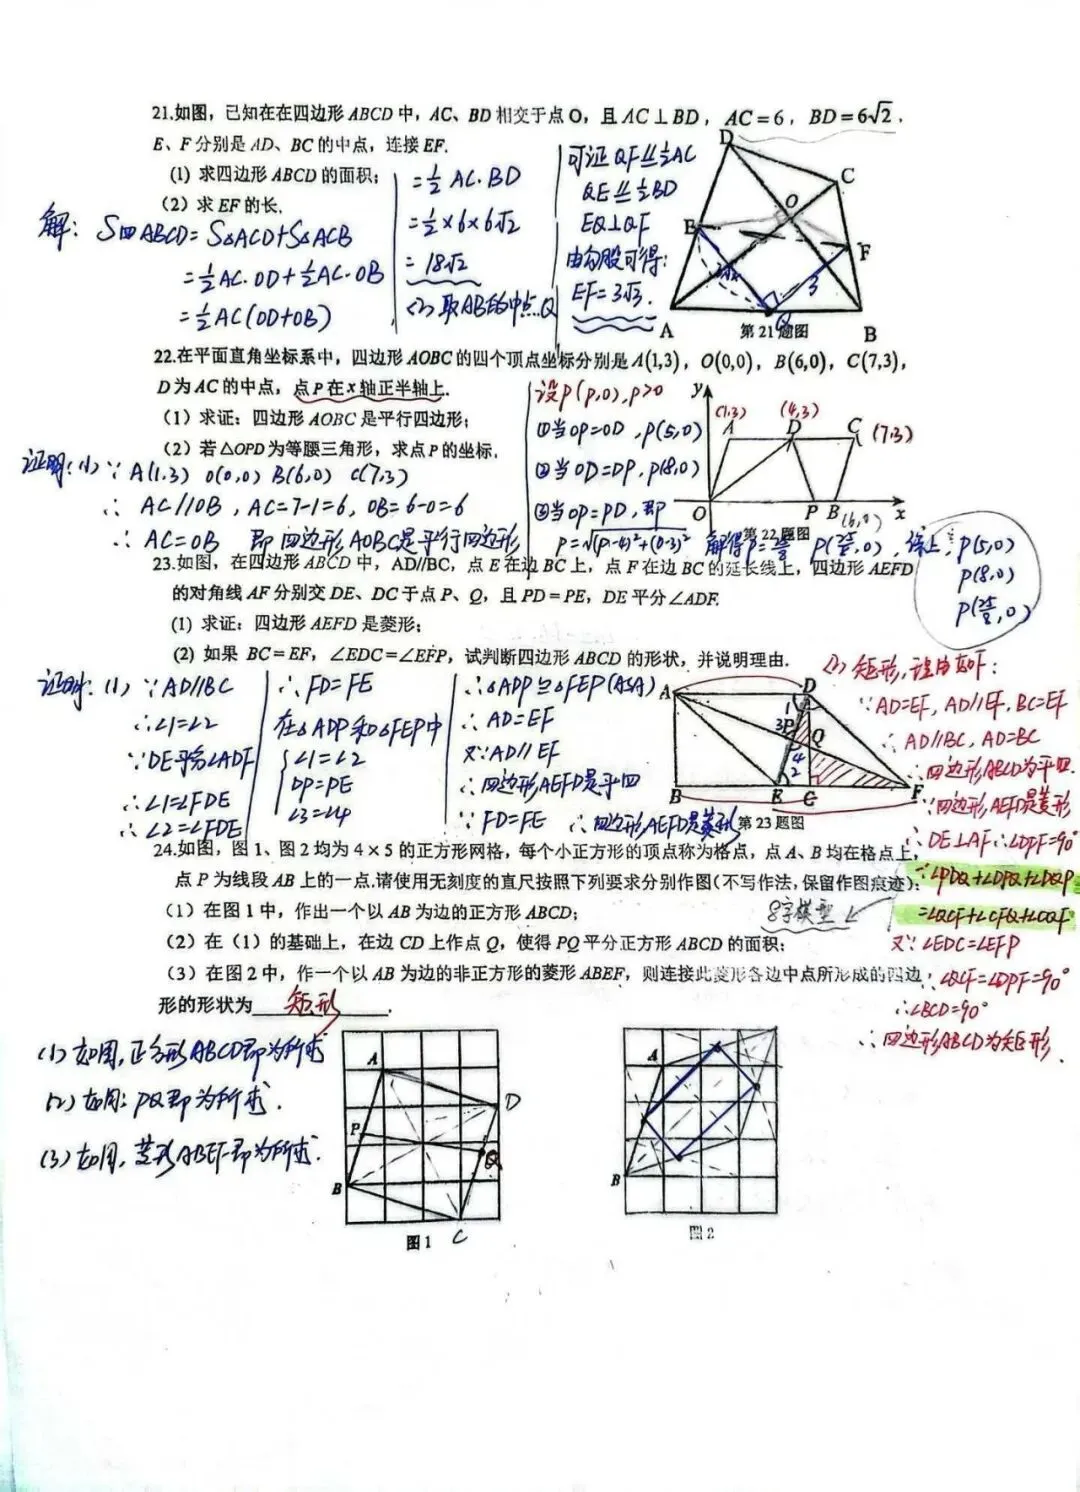 21.如图，已知在在四边形ABCD中，AC、BD相交于点O，且AC⊥BD，AC=6，BD=6√2，
E、F分别是AD、BC的中点，连接EF.
(1) 求四边形ABCD的面积；
(2) 求EF的长.
解：S四ABCD=S△ACD+S△ACB
=½AC·OD+½AC·OB
=½AC(OD+OB)
=½AC·BD
=½×6×6√2
=18√2
(2)取AB的中点Q
可证QF⫽½AC
QE⫽½BD
EQ⊥QF
由勾股可得:
EF=3√3.
D
C
O
E
F
3
A
Q
B
第21题图
22.在平面直角坐标系中，四边形AOBC的四个顶点坐标分别是A(1,3)，O(0,0)，B(6,0)，C(7,3)，
D为AC的中点，点P在x轴正半轴上.
(1) 求证：四边形AOBC是平行四边形；
(2) 若△OPD为等腰三角形，求点P的坐标.
证明：(1) ∵A(1,3) O(0,0) B(6,0) C(7,3)
∴ AC//OB，AC=7-1=6，OB=6-0=6
∴ AC=OB 即四边形AOBC是平行四边形
设P(p,0),p>0
①当OP=OD，P(5,0)
②当OD=DP，P(8,0)
③当OP=PD，即
P=√(P-4)²+(0-3)²
解得P=25/8 P(25/8,0)，综上，P(5,0)
P(8,0)
P(25/8,0)
y
(1,3)
(4,3)
A
D
C
(7,3)
O
P
B
(6,0)
x
第22题图
23.如图，在四边形ABCD中，AD//BC，点E在边BC上，点F在边BC的延长线上，四边形AEFD
的对角线AF分别交DE、DC于点P、Q，且PD=PE，DE平分∠ADF.
(1) 求证：四边形AEFD是菱形；
(2) 如果BC=EF，∠EDC=∠EFP，试判断四边形ABCD的形状，并说明理由.
证明：(1) ∵AD//BC
∴∠1=∠2
∵DE平分∠ADF
∴∠1=∠FDE
∴∠2=∠FDE
∴FD=FE
在△ADP和△FEP中
∠1=∠2
DP=PE
∠3=∠4
∴△ADP≌△FEP(ASA)
∴ AD=EF
又∵AD//EF
∴四边形AEFD是平四
∵FD=FE ∴四边形AEFD是菱形
A
D
1
P
3
Q
4
2
B
E
C
F
第23题图
(2) 矩形，理由如下：
∵AD=EF, AD//EF, BC=EF
∴AD//BC, AD=BC
∴四边形ABCD为平四.
∵四边形AEFD是菱形
∴DE⊥AF ∴∠DPF=90°
∵∠PDQ+∠DPQ+∠DQP
=∠QCF+∠CFQ+∠CQF
又∵∠EDC=∠EFP
∴∠QCF=∠DPF=90°
∴∠BCD=90°
∴四边形ABCD为矩形.
8字模型
24.如图，图1、图2均为4×5的正方形网格，每个小正方形的顶点称为格点，点A、B均在格点上，
点P为线段AB上的一点.请使用无刻度的直尺按照下列要求分别作图(不写作法,保留作图痕迹)：
（1）在图1中，作出一个以AB为边的正方形ABCD；
（2）在（1）的基础上，在边CD上作点Q，使得PQ平分正方形ABCD的面积；
（3）在图2中，作一个以AB为边的非正方形的菱形ABEF，则连接此菱形各边中点所形成的四边
形的形状为 矩形 .
(1) 如图，正方形ABCD即为所求
(2) 如图：PQ即为所求.
(3) 如图，菱形ABEF即为所求.
A
D
P
Q
B
C
图1
A
B
图2